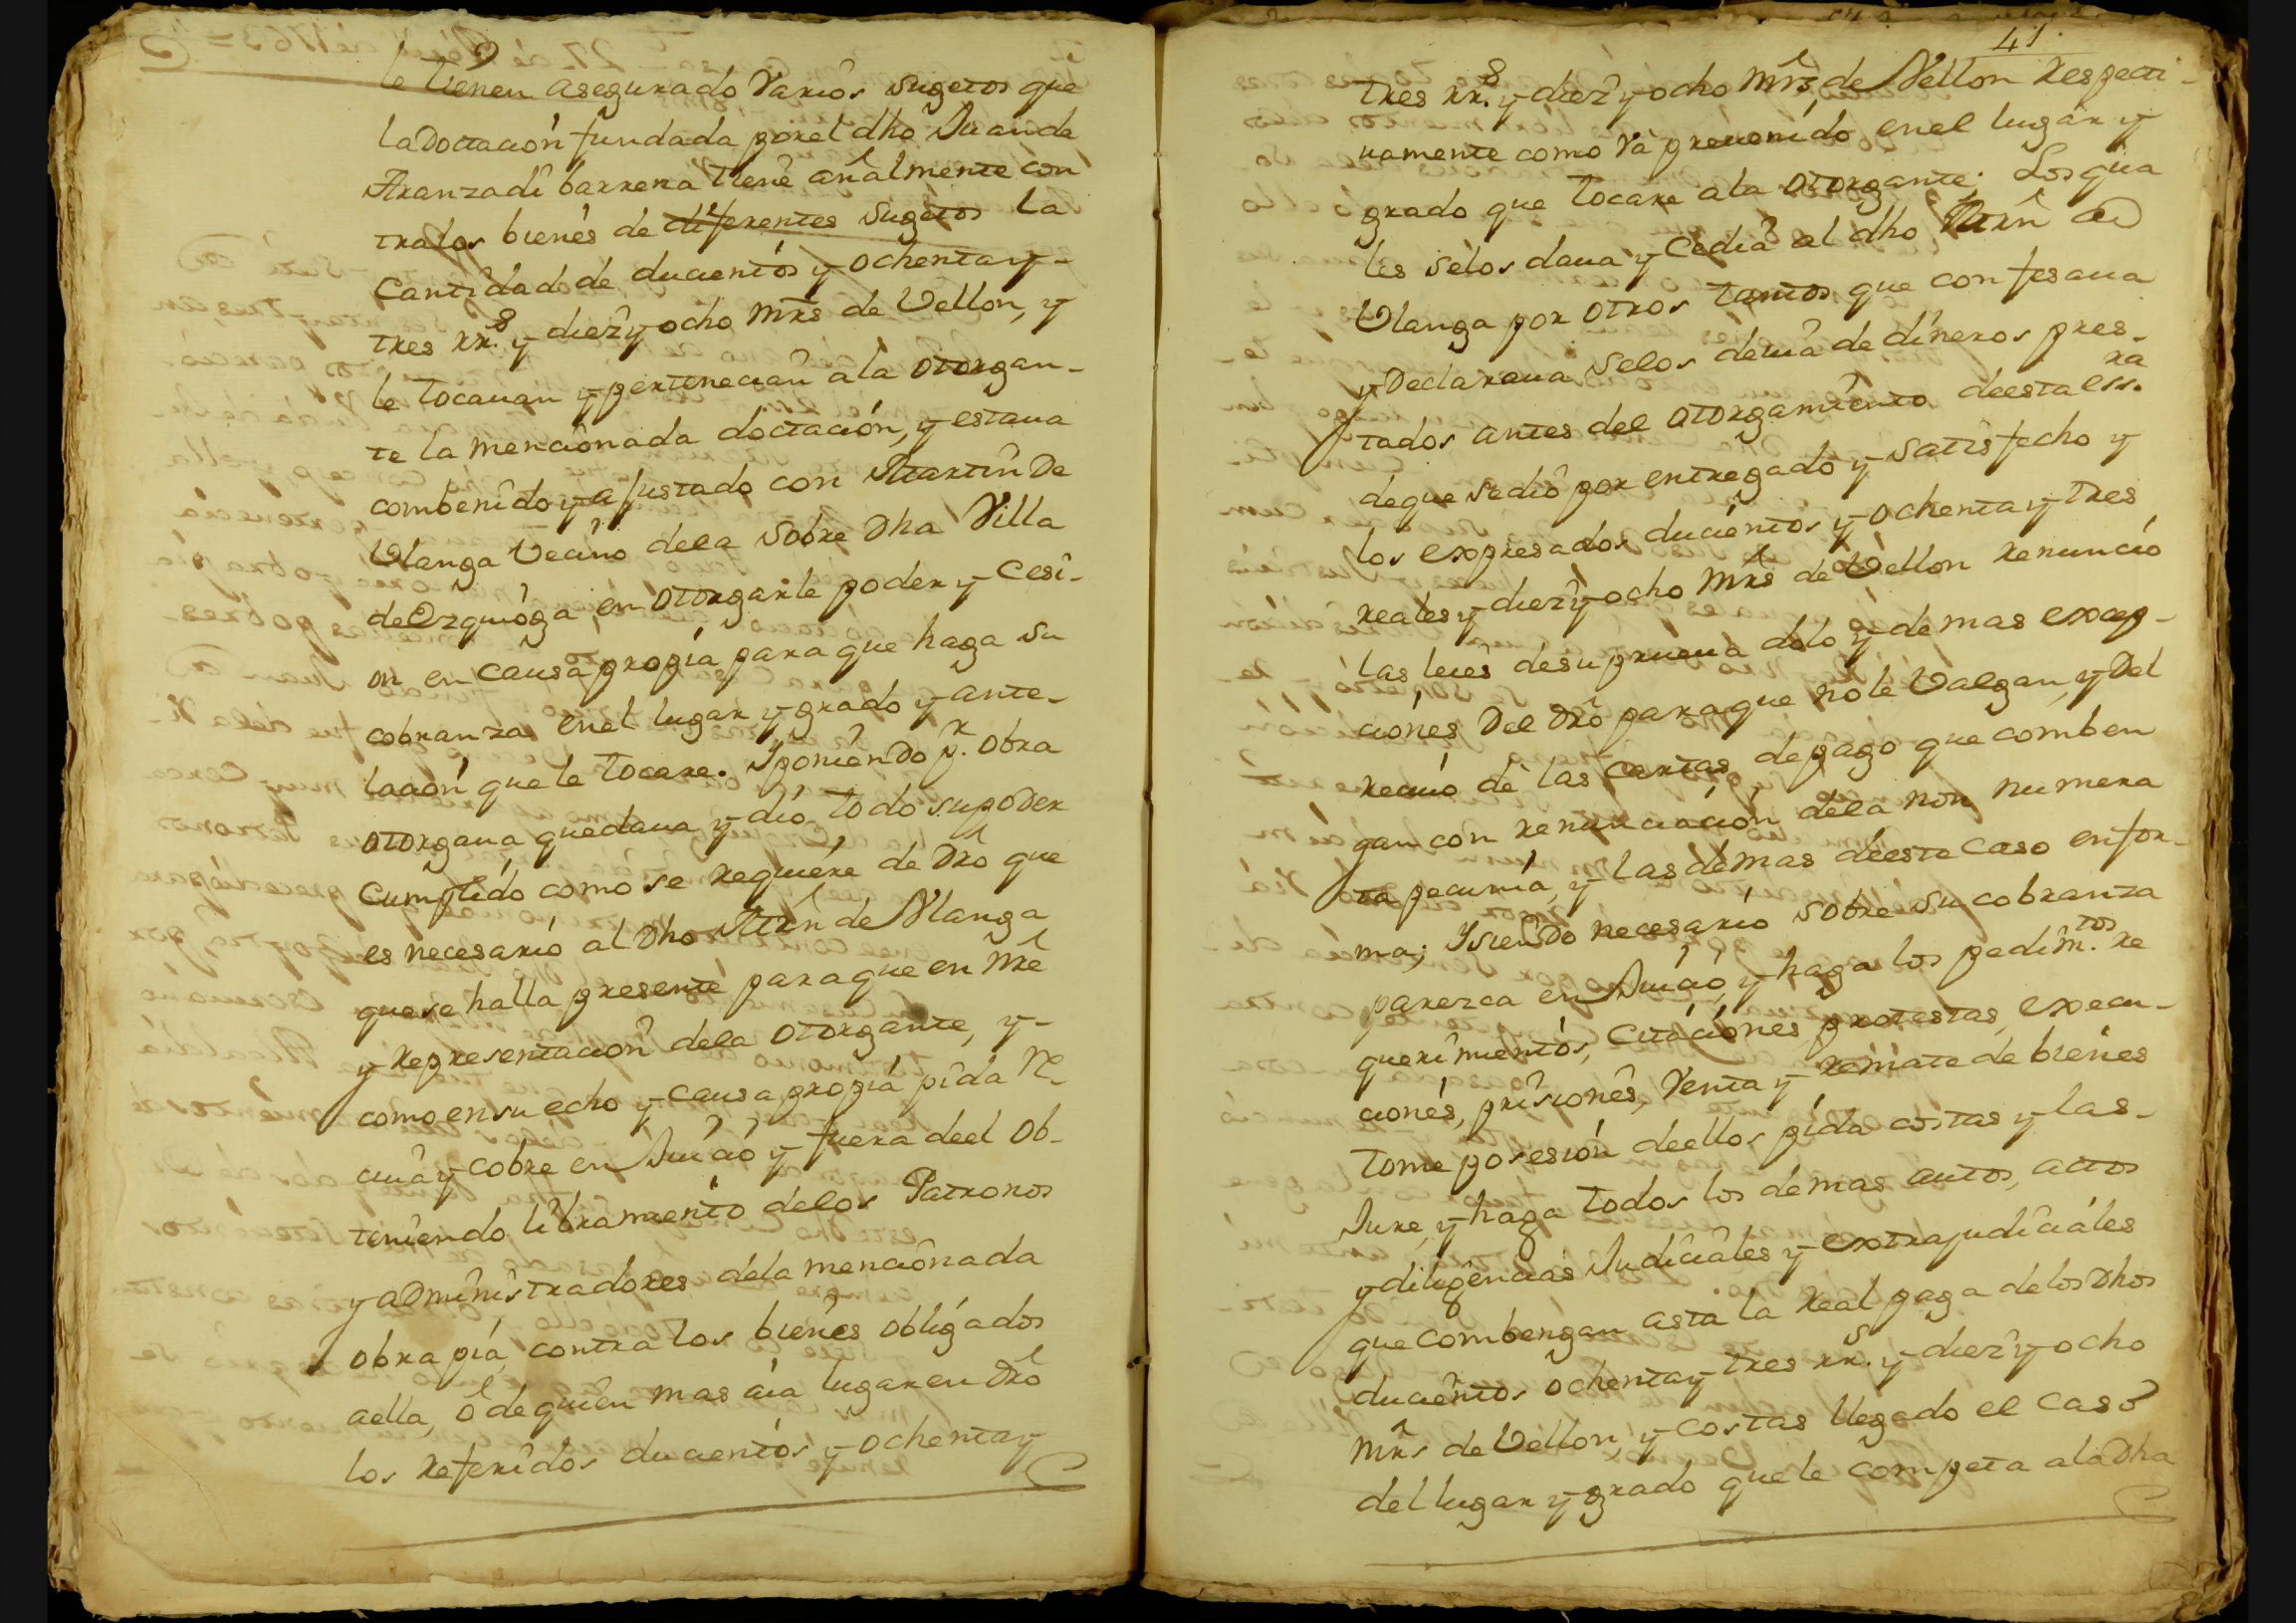 le tienen asegurado Varios sugetos que
la Doctacion fundada por el dho Juan de
Aranzadi barrena tiene añalmente con
tra los bienes de diferentes sugetos la
cantidad de ducientos y ochenta y-
tres rr.s y diez y ocho mrs de Vellon, y
le tocauan y pertenecian a la otorgan-
te la mencionada doctacion, y estaua
combenido y ajustado con Martin de
Vlanga Vecino dela sobre dha Villa
de Ozquioga, en otorgarle poder y cesi-
on en causa propia para que haga su
cobranza en el lugar y grado y ante-
lacion que le tocare. Y poniendo p.r obra
otorgaua que daua y dio todo su poder
Cumplido como se requiere de dro que
es necesario al dho Mrn de Vlanga
que se halla presente para que en nre
y representacion dela otorgante, y-
como en su echo y causa propia pida re-
ciua y cobre en Juicio y fuera deel ob-
teniendo libramiento delos Patronos
y administradores dela mencionada
obra pia, contra los bienes obligados
aella, o de quien mas aia lugar en dro
los referidos ducientos y ochenta y
41.
tres rr.s y diez y ocho mrs de Vellon respecti-
uamente como va preuenido en el lugar y
grado que tocare ala otorgante; Los qua
les selos daua y cedia al dho Mrn de
Vlanga por otros tantos que confesaua
y Declaraua selos deuia de dineros pres-
tados antes del otorgamiento deesta ess.ra
deque sedio por entregado y satisfecho y
los expresados ducientos y ochenta y tres
reales y diez y ocho mrs de Vellon renuncio
las leies desu prueua dolo y demas excep-
ciones Del dro para que no le Valgan, y Del
reciuo de las cartas de pago que comben
gan con renunciacion dela non numera
ta pecunia, y las demas deeste caso en for-
ma; Y siendo necesario sobre su cobranza
parezca en Juicio, y haga los pedim.tos re
querimientos, citaciones protestas, execu-
ciones, prisiones, Venta y remate de bienes
tome posesion deellos pida costas y las-
Jure, y haga todos los demas autos, actos
y diligencias Judiciales y extrajudiciales
que combengan asta la Real paga delos dhos
ducientos ochenta y tres rr.s y diez y ocho
mrs de Vellon, y costas llegado el caso
del lugar y grado que le competa ala dha